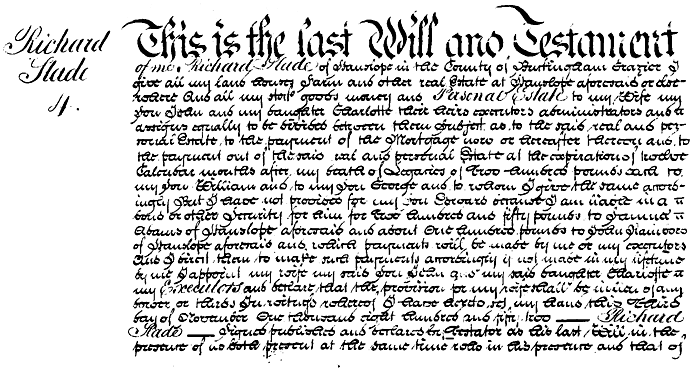 Richard
Slade
4.
This is the last Will and Testament
of me Richard Slade of Hanslope in the County of Buckingham Grazier I
give all my land houses Farm and other real Estate at Hanslope aforesaid or else
where And all my stock goods money and Personal Estate to my Wife my
son John and my daughter Charlotte their heirs executors administrators and
assigns equally to be divided between them subject as to the said real and per
sonal Estate to the payment of the Mortgage now or hereafter thereon and to
the payment out of the said real and personal Estate at the expiration of twelve
Calendar months after my death of Legacies of Two hundred pounds each to
my son William and to my son George and to whom I give the same accord
ingly But I have not provided for my son Edward because I am liable in a
bond or other Security for him for Two hundred and fifty pounds to Samuel
Adams of Hanslope aforesaid and about One hundred pounds to John
of Hanslope aforesaid and which payments will be made by me or my executors
And I direct them to make such payments accordingly if not made in my lifetime
by me I appoint my wife my said son John and my said daughter Charlotte
my Executors and declare that the provision for my wife shall be in lieu of any
dower or thirds In witness whereof I have hereto set my hand this Third
day of November One thousand eight hundred and fifty two — Richard
Slade — Signed published and declared by Testator as his last Will in the
presence of us both present at the same time who in his presence and that of